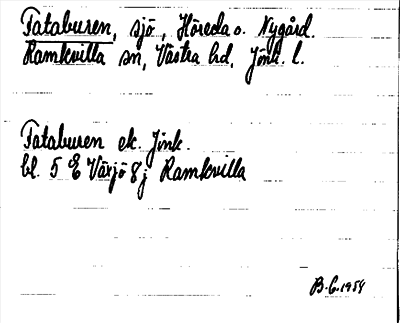 Fataburen, sjö, Höreda o. Nygård.
Ramkvilla sn, Västra hd, Jönk. l.
Fataburen ek. Jönk.
bl. 5 E Växjö 8j Ramkvilla
B.G. 1954